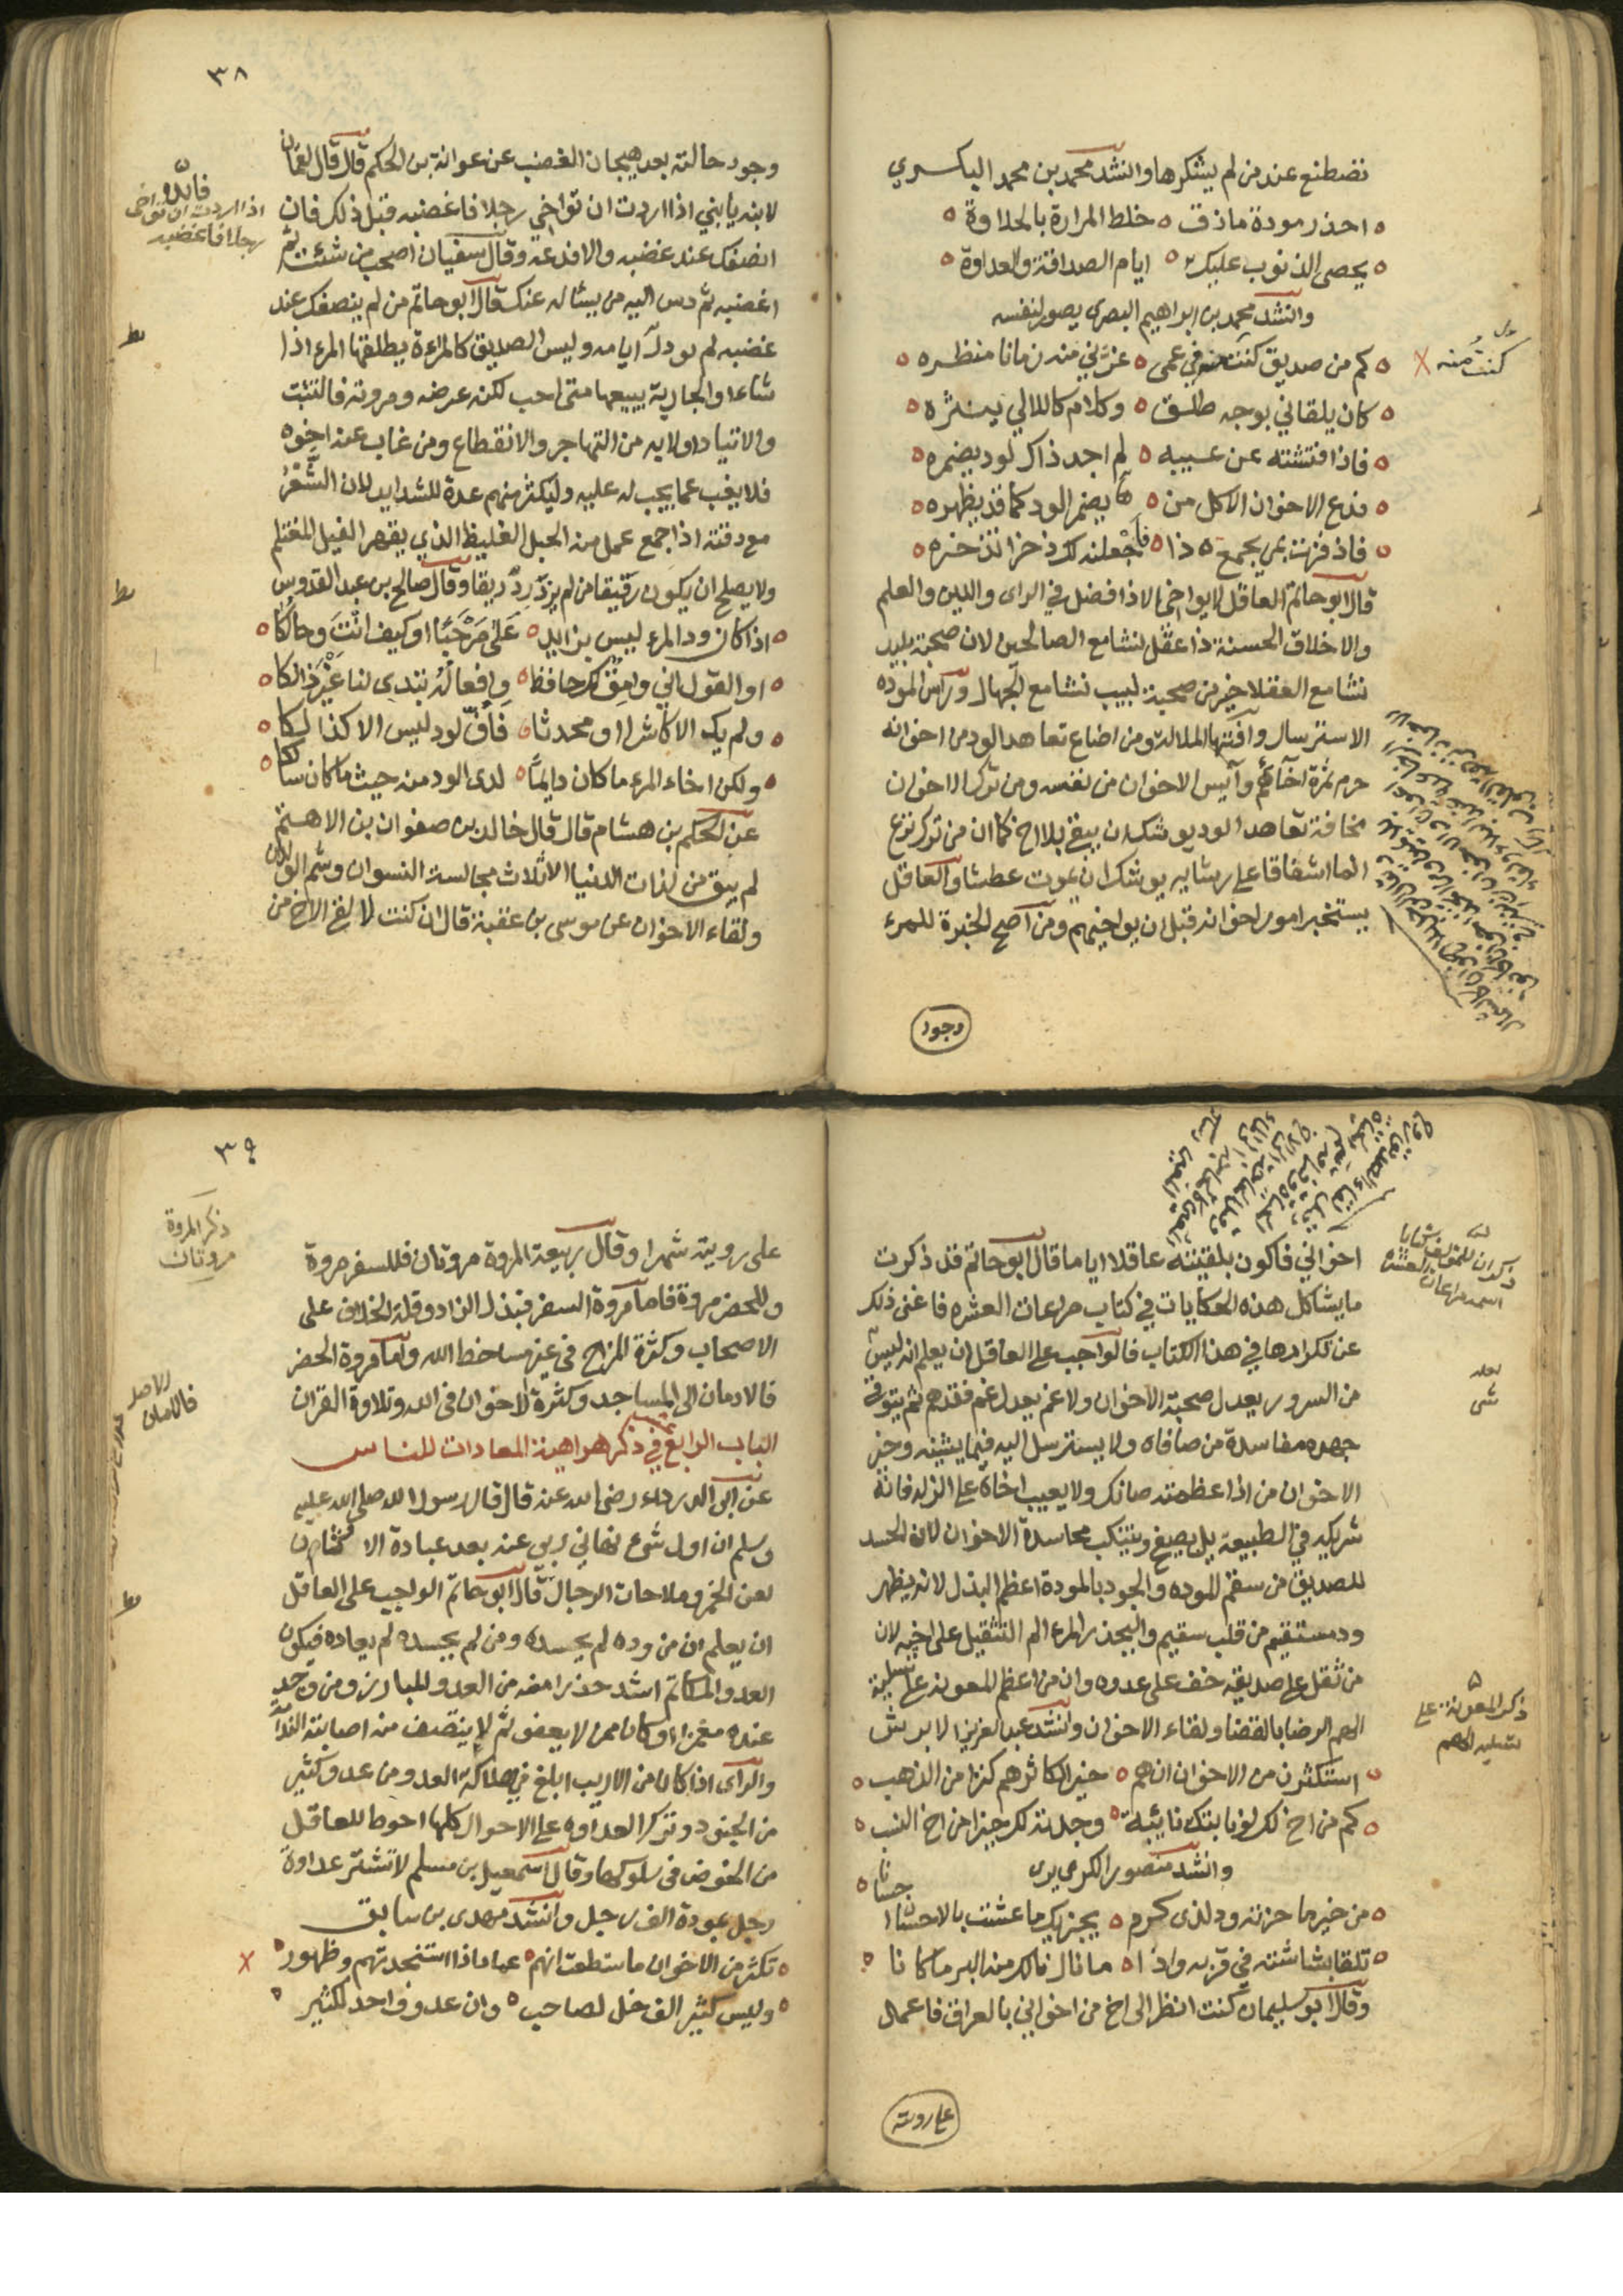 تصطنع عند من لم يشكرها وانشد محمد بن محمد البكسري
احذر مودة ماذق خلط المرارة بالحلاوة
يحصى الذنوب عليك ايام الصداقة والعداوة
وانشد محمد بن ابراهيم البصرى يصور لنفسه
كم من صديق كنت منه في عمى غرني منه زمانا منظره
كان يلقاني بوجه طلق وكلام كاللالي ينثره
فاذا فتشته عن غيبه لم اجد ذاك لود يضمره
فدع الاخوان الا كل من يضمر الود كما قد يظهره
فاذا فزت بمن يجمع ذا فاجعلنه لك ذخرا تذخره
قال ابو حاتم العاقل لا يواخى الا ذا فضل في الراى والدين والعلم
والاخلاق الحسنة ذا عقل نشا مع الصالحين لان صحبة بليد
نشا مع العقلا خير من صحبة لبيب نشا مع الجهال وراس الموده
الاسترسال وآفتها الملالة ومن اضاع تعاهد الود من اخوانه
حرم ثمرة اخائهم وآيس الاخوان من نفسه ومن ترك الاخوان
مخافة تعاهد الود يوشك ان يبقى بلا اخ كما ان من ترك نزع
الما اشفاقا على رشايه يوشك ان يموت عطشا والعاقل
يستخبر امور اخوانه قبل ان يواخيهم ومن اصح الخبرة للمرء
وجود
كنت منه
٣٨
وجود حالته بعد هيجان الغضب عن عوانة بن الحكم قال قال لقمان
لابنه يا بني اذا اردت ان تواخي رجلا فاغضبه قبل ذلك فان
انصفك عند غضبه والا فدعه وقال سفيان اصحب من شئت ثم
اغضبه ثم دس اليه من يساله عنك قال ابو حاتم من لم ينصفك عند
غضبه لم يود لك ايامه وليس الصديق كالمراة يطلقها المرء اذا
شاء او الجارية يبيعها متى احب لكنه عرضه ومروته فالتثبت
والاتياد اولا به من التهاجر والانقطاع ومن غاب عنه اخوه
فلا يغب عما يجب له عليه وليكثر منهم عدة للشدايد لان الشعر
مع دقته اذا جمع عمل منه الحبل الغليظ الذي يقهر الفيل المغتلم
ولا يصلح ان يكون رقيقا من لم يزدرد ريقا وقال صالح بن عبد القدوس
اذا كان ود المرء ليس بزايد على مرحبا او كيف انت وحالكا
او القول اني وامق لك حافظ وافعاله تبدى لنا غير ذالكا
ولم يك الا كاشرا او محدثا فاف لود ليس الا كذالكا
ولكن اخاء المرء ما كان دايما لدى الود منه حيث ما كان سالكا
عن الحكم بن هشام قال قال خالد بن صفوان بن الاهتم
لم يبق من لذات الدنيا الا ثلاث مجالسة النسوان وشم الولدان
ولقاء الاخوان عن موسى بن عقبة قال ان كنت لالقى الاخ من
فائده
اذا اردت ان تواخى
رجلا فاغضبه
ط
ط
اخواني فاكون بلقيته عاقلا اياما قال ابو حاتم قد ذكرت
ما يشاكل هذه الحكايات في كتاب مراعات العشره فاغنى ذلك
عن تكرارها في هذا الكتاب فالواجب على العاقل ان يعلم انه ليس
من السرور يعدل صحبة الاخوان ولا غم يعدل غم فقدهم ثم يتوقى
جهده مفاسدة من صافاه ولا يسترسل اليه فيما يشينه وخير
الاخوان من اذا عظمته صانك ولا يعيب اخاه على الزلة فانه
شريكه في الطبيعة بل يصفح ويتنكب محاسدة الاخوان لان الحسد
للصديق من سقم الموده والجود بالمودة اعظم البذل لانه يظهر
ود مستقيم من قلب سقيم وليحذر المرء الم التثقيل على اخيه لان
من ثقل على صديقه خف على عدوه وان من اعظم المعونة على تسلية
الهم الرضا بالقضا ولقاء الاخوان وانشد عبد العزيز الابرش
استكثرن من الاخوان انهم خير لكاثرهم كنزا من الذهب
كم من اخ لك لو نابتك نائبة وجدته لك خيرا من اخ النسب
وانشد منصور الكريزى
من خير ما حزته ود لذى كرم يجزيك ما عشت بالاحسان احسانا
تلقا بشاشته في قربه واذا ما نال نالك منه البر ما كانا
وقال ابو سليمان كنت انظر الى اخ من اخواني بالعراق فاعمل
على رويته
ذكر ان للمؤلف كتابا
اسمه مراعات العشرة
لعله
شى
ذكر المعونة على
تسلية الهم
٣٩
على رويته شهرا وقال ربيعة المروة مروتان فللسفر مروة
وللحضر مروة فاما مروة السفر فبذل الزاد وقلة الخلاف على
الاصحاب وكثرة المزاح في غير مساخط الله واما مروة الحضر
فالادمان الى المساجد وكثرة الاخوان في الله وتلاوة القران
الباب الرابع عشر في ذكر هواهية المعادات للناس
عن ابى الدرداء رضى الله عنه قال قال رسول الله صلى الله عليه
وسلم ان اول شئ نهاني ربي عنه بعد عبادة الاوثان
لعن الخمر وملاحات الرجال قال ابو حاتم الواجب على العاقل
ان يعلم ان من وده لم يحسده ومن لم يحسده لم يعاده فيكون
العدو المكاتم اشد حذرا منه من العدو المبارز ومن وجد
عنده مغمزا او كان ممن لا يعفو ثم لا ينتصف منه اصابته الندامة
والراى اذا كان من الاريب ابلغ في هلاك العدو من عدو كثير
من الجنود وترك العداوه على الاحوال كلها احوط للعاقل
من الخوض في سلوكها وقال اسمعيل بن مسلم لا تشتر عداوة
رجل بمودة الف رجل وانشد مهدى بن سابق
تكثر من الاخوان ما سطعت انهم عماد اذا استنجدتهم وظهور
وليس كثير الف خل لصاحب وان عدوا واحدا لكثير
ذكر المروة
مروتان
الاصل
فالادمان
ط